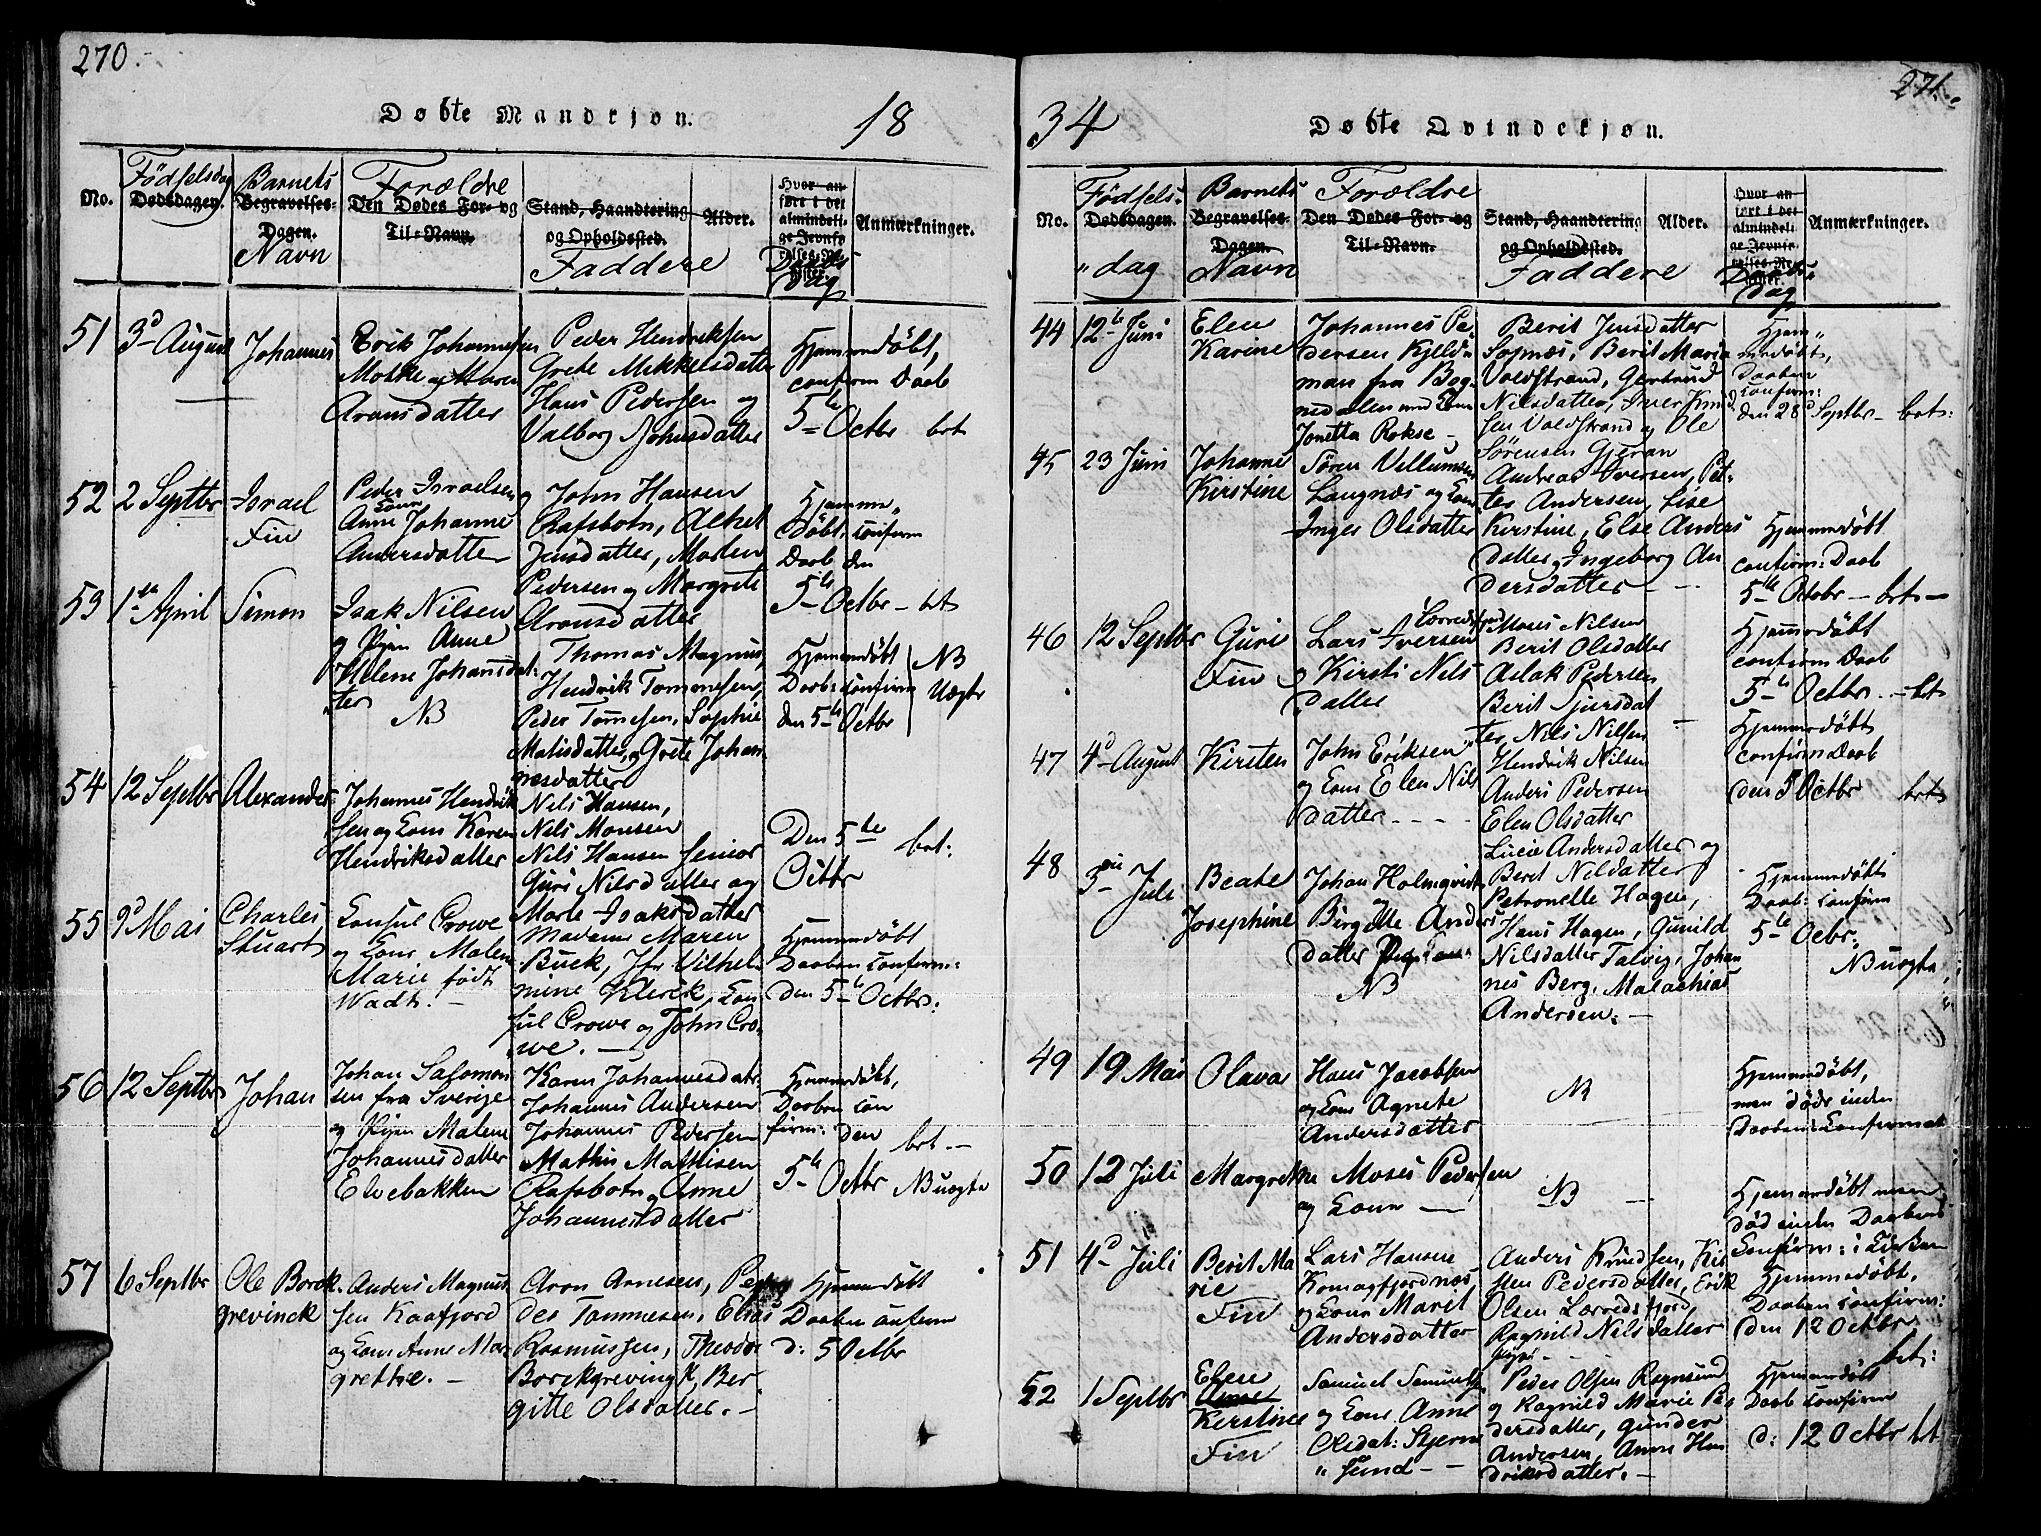 270.
Døbte Mandkjøn.
18
No.
Födselsdag
Dødsdagen.
Barnets
Begravelses-
Dagen.
Navn
Forældre
Den Dødes For- og
Til-Navn.
Stand, Haandtering
og Opholdssted.
Faddere
Alder.
Hvor an-
ført i det
almindeli-
ge Jevnfø-
relses-Re-
gister.
Daabs
dag
Anmærkninger.
51
3d August
Johannes
Erik Johannesen
Mokke og Maren
Aronsdatter
Peder Hendriksen
Grete Mikkelsdatter
Hans Pedersen og
Valborg Johnsdatter
Hjemmedøbt,
confirm Daab
5te Octbr brt
52
2 Septbr
Israel
Fin
Peder Israelsen
og Kone
Anne Johanne
Andersdatter
John Hansen
Rafsbotn,
Jensdatter, Morten
Pedersen og Margrete
Aronsdatter
Hjemme-
døbt, confirm
Daab den
5te Octbr - brt
53
1ste April
Simon
Isak Nilsen
og Pigen Anne
Helene Johansdat-
ter
NB
Thomas Magnus,
Hendrik Tommesen,
Peder Tommesen, Sophie
Matisdatter, og Grete Johan
nesdatter
Hjemmedøbt
Daab: confirm
den 5te Octbr
NB
Uægte
54
12 Septbr
Alexander
Johannes Hendrik
sen og Kone Karen
Hendriksdatter
Nils Hansen,
Nils Monsen
Nils Hansen senior
Guri Nilsdatter og
Marte Isaksdatter
Den 5te
Octbr
brt:
55
9d Mai
Charles
Stuart
Consul Crowe
og Kone Malene
Marie født
Wadt. -
Madame Maren
Buck, Jfr Vilhel
mine Klerck, Con
sul Crowe og John Cro-
we. -
Hjemmedøbt
Daaben confirm:
den 5te Octbr:
56
12 Septbr
Johan
Johan Salomon
sen fra Sverige
og Pigen Malene
Johannesdatter
Elvebakken
Karen Johannesdatr.
Johannes Andersen
Johannes Pedersen
Mathis Mathisen
Rafsbotn og Anne
Johannesdatter
Hjemmedøbt,
Daaben con
firm: den
5te Octbr
brt -
NB uægte
57
6 Septbr
Ole Borck
grevinck
Anders Magnus
sen Kaafjord
og Kone Anne Mar
grethe. -
Aron Arnesen, Pe
der Tommesen, Elias
Rasmussen, Theodor
Borckgrevingk, Ber
gitte Olsdatter. -
Hjemmedøbt
Daaben confirm
d: 5 Octbr
271.
34
Døbte Qvindekjøn.
No.
Födsels-
Dødsdagen.
"dag
Barnets
Begravelses-
Dagen.
Navn
Forældre
Den Dødes For- og
Til-Navn.
Stand, Haandtering
og Opholdssted.
Faddere
Alder.
Hvor an-
ført i det
almindeli-
ge Jevnfø-
relses-Re-
gister.
Daabs
dag
Anmærkninger.
44
12te Juni
Elen
Karine
Johannes Pe
dersen Kjeld
man fra Bog
nedalen med Kone
Jonetta Rokse -
Berit Jensdatter
Sopnæs, Berit Maria
Voldstrand, Gertrud
Nilsdatter, Iver Knud
sen Voldstrand og Ole
Sørensen Gjeran
Hjem-
medøbt,
Daaben
confirm:
den 28d Septbr - brt:
45
23 Juni
Johanne
Kirstine
Søren Villumsen
Langnæs og Kone
Inger Olsdatter
Andreas Iversen, Pet-
ter Andersen, Lise
Kirstine, Else Anders
datter, Ingeborg An
dersdatter - -
Hjemmedøbt
confirm: Daab
5te Octobr - brt -
46
12 Septbr
Guri
Fin
Lars Iversen
og Kirsti Nils
datter
Moses Nilsen
Berit Olsdatter
Aslak Pedersen
Berit Sjursdat
ter, Nils Nilsen
Hjemmedøbt
confirm Daab
5te Octbr. - brt
47
4d August
Kirsten
John Eriksen
og Kone Elen Nils
datter - - -
Hendrik Nilsen
Anders Pedersen
Elen Olsdatter
Lucie Andersdatter og
Berit Nilsdatter
Hjemmedøbt
confirm Daab
den 5 Octbr brt
48
3die Juli
Beate
Josephine
Johan Holmqvist
og
Birgitte Anders
datter
NB
Petronelle Hagen,
Hans Hagen, Gunild
Nilsdatter Talvig, Johan
nes Berg, Malachias
Andersen. -
Hjemmedøbt
Daab: confirm
5te Octbr.
NB uægte
49
19 Mai
Olava
Hans Jacobsen
og Kone Agnete
Andersdatter
NB
Hjemmedøbt,
men døde inden
Daabens Confirmat
50
12 Juli
Margrethe
Moses Pedersen
og Kone -
NB -
Hjemmedøbt men
død inden Daabens
Confirm: i Kirken
51
4d Juli
Berit Ma
rie
Fin
Lars Hansen
Komagfjordnæs,
og Kone Marit
Andersdatter
Anders Knudsen, Kir
sten Pedersdatter, Erik
Olsen Lerredsfjord,
Ragnild Nilsdatter
Hjemmedøbt,
Daaben confirm:
den 12 Octbr
brt:
52
1 Septbr
Elen
Anne
Kerstine
Fin
Samuel Samuels
og Kone Anne
Olsdat: Stjern
"sund - -
Peder Olsen Rognsund
og Ragnild Marie Pe
dersdatter, Gunder
Andersen, Anne Hen
driksdatter. -
Hjemmedøbt
Daab confirm
d: 12 Octbr brt